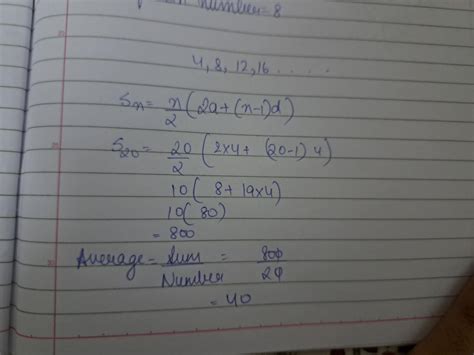 number=8
4, 8, 12, 16 .....
Sn = n/2 (2a+(n-1)d)
S20 = 20/2 (2x4+ (20-1) 4)
10( 8+ 19x4)
10( 80)
= 800
Average = Sum/Number = 800/20
= 40